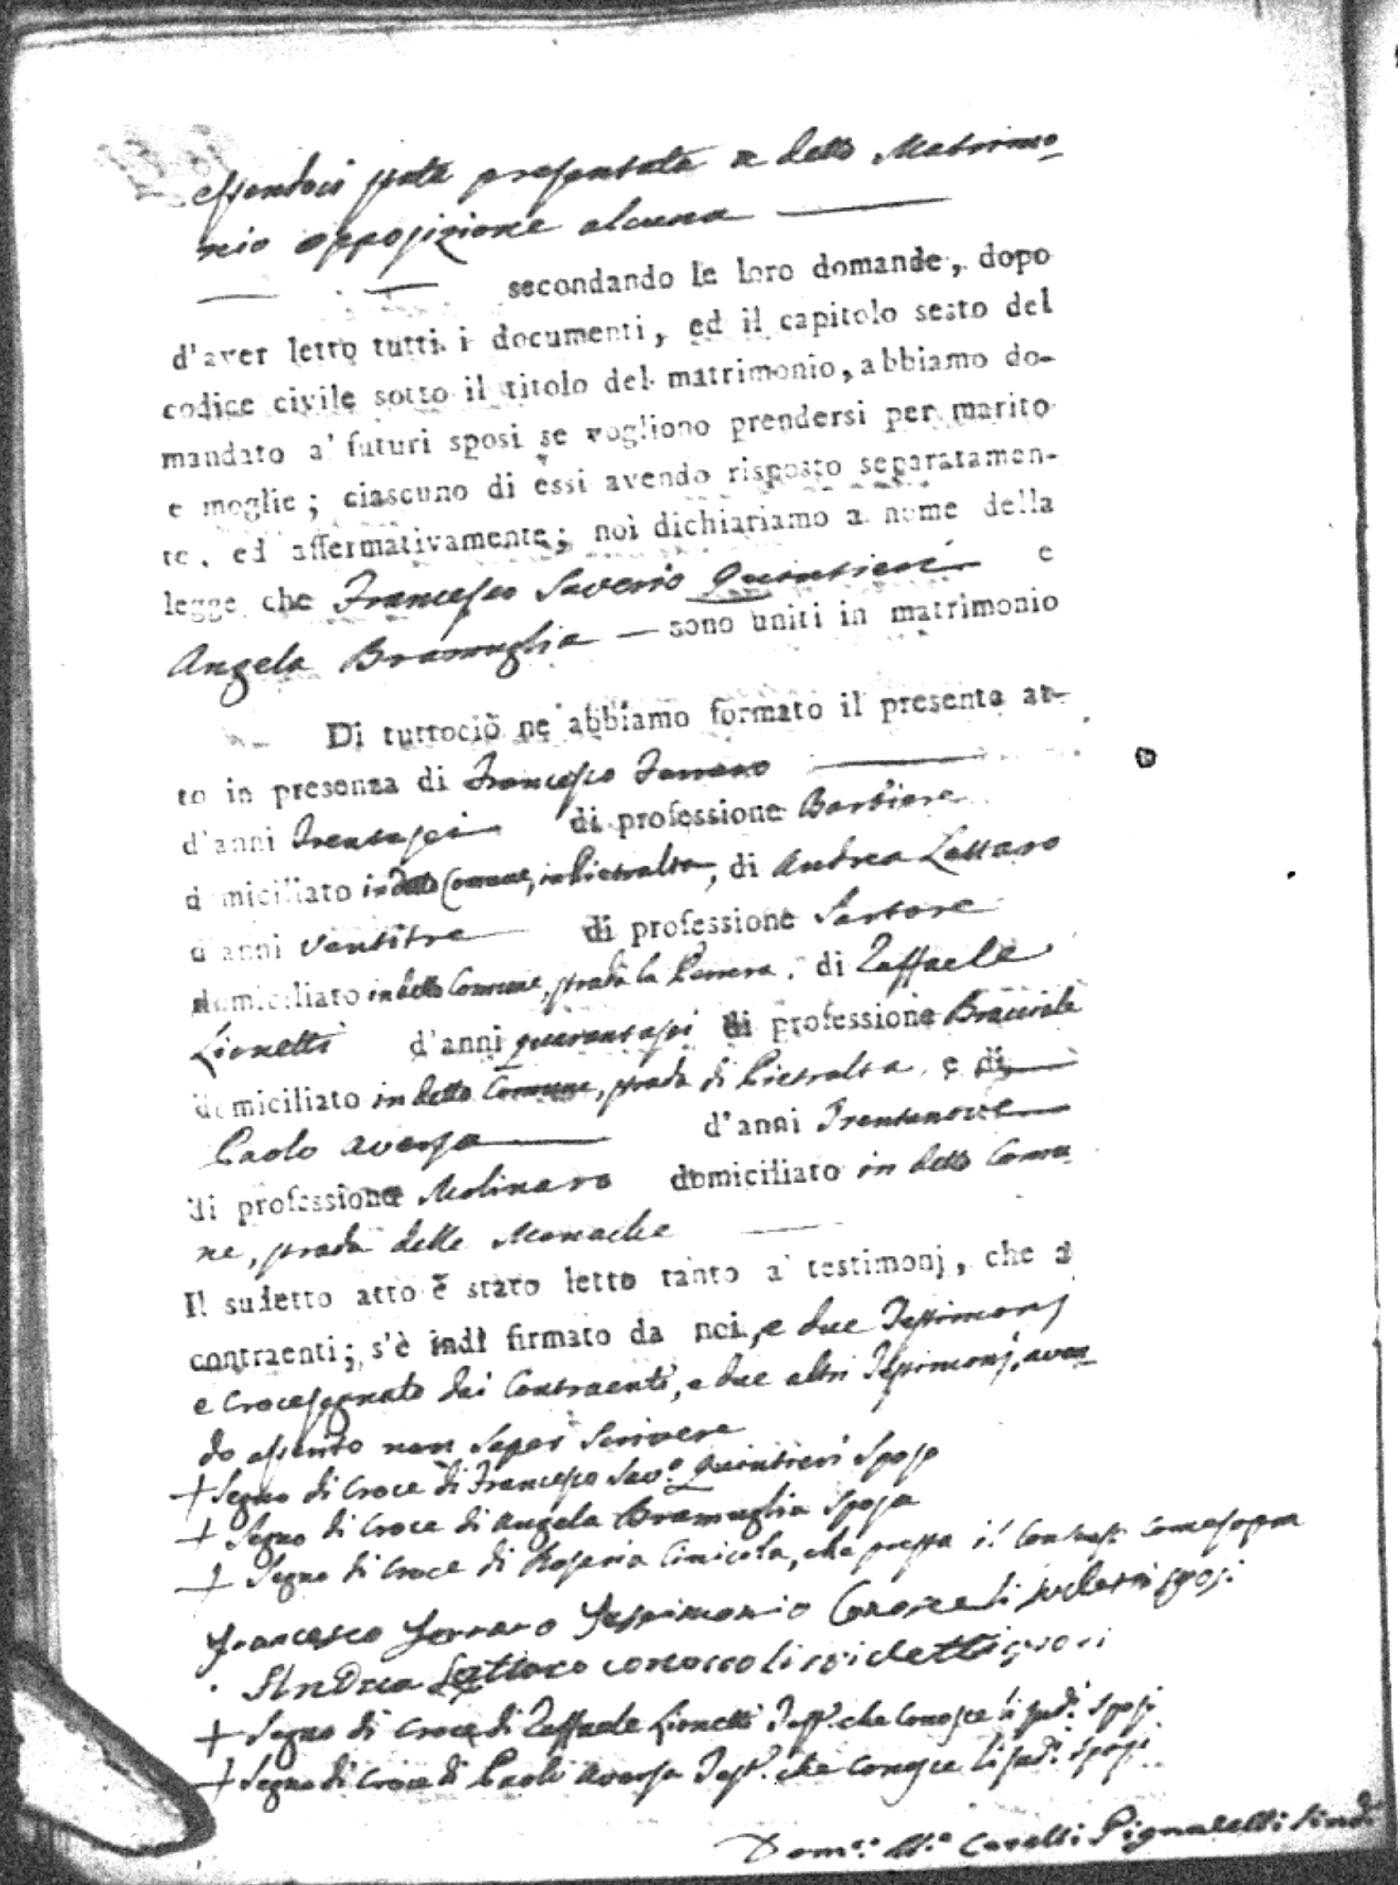 essendoci stata presentata a detto Matrimo-
nio opposizione alcuna
secondando le loro domande, dopo
d'aver letto tutti i documenti, ed il capitolo sesto del
codice civile sotto il titolo del matrimonio, abbiamo do-
mandato a' futuri sposi se vogliono prendersi per marito
e moglie; ciascuno di essi avendo risposto separatamen-
te, ed affermativamente; noi dichiariamo a nome della
legge che Francesco Saverio Quintieri e
Angela Bramuglia — sono uniti in matrimonio
Di tuttociò ne abbiamo formato il presente at-
to in presenza di Francesco Ferraro
d'anni Trentasei di professione Barbiere
domiciliato in detto Comune, in Pietralta, di Andrea Lattaro
d'anni ventitre di professione Sartore
domiciliato in detto Comune, strada la di Raffaele
Lionetti d'anni quarantasei di professione Bracciale
domiciliato in detto Comune, strada di Pietralta, e di
Paolo Aversa d'anni Trentanove
di professione Molinaro domiciliato in detto Comu-
ne, strada delle Monache
Il sudetto atto è stato letto tanto a' testimonj, che a'
contraenti; s'è indi firmato da noi, e due Testimonj
e Crocesegnato dai Contraenti, e due altri Testimonj, aven-
do asserito non saper Scrivere
+ Segno di Croce di Francesco Sav.o Quintieri Sposo
+ Segno di Croce di Angela Bramuglia Sposa
+ Segno di Croce di Rosaria che presta il come sopra
Francesco Ferraro Testimonio Conosce li sudetti sposi
Andrea Lattaro conosco li sudetti sposi
+ Segno di Croce di Raffaele Lionetti Test.o che Conosce li sud.i Sposi
+ Segno di Croce di Paolo Aversa Test.o che conosce li sud.i sposi
Dom.co M.a Caselli Pignatelli Sind.o